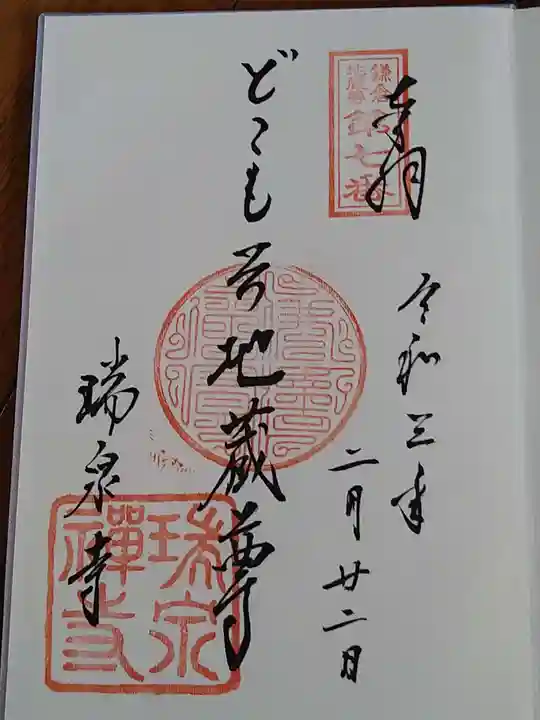 奉拝
鎌倉
地蔵尊
第七番
令和三年
二月廿二日
どこも苦地蔵尊
瑞泉寺
瑞泉
禅寺